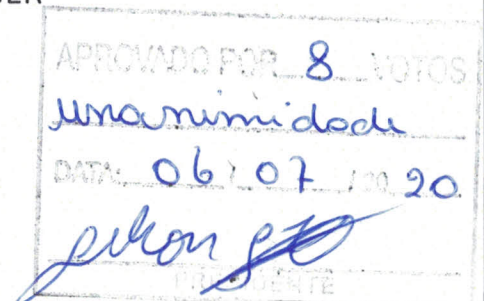 APROVADO POR 8 VOTOS
unanimidade
DATA: 06 / 07 / 20 20
PRESIDENTE